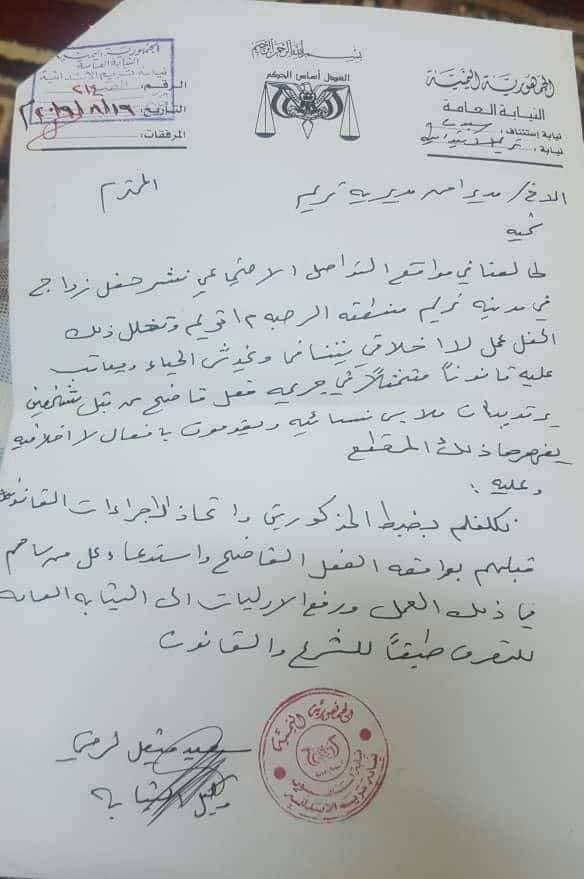 بسم الله الرحمن الرحيم
العدل أساس الحكم
الجمهورية اليمنية
النيابة العامة
نيابة إستئناف: سيئون
نيابة: تريم الابتدائية
الجمهورية اليمنية
النيابة العامة
نيابة تريم الابتدائية
الرقم: ٢١٤
التاريخ: ٢٠١٩/٨/١٩م
المرفقات:
الاخ / مدير امن مديرية تريم المحترم
تحية
طالعنا في مواقع التواصل الاجتماعي نشر حفل زواج
في مدينة تريم منطقة الرحبه وتخلل ذلك
الحفل عمل لا اخلاقي يتنافى ويخدش الحياء ويعاقب
عليه قانوناً متمثلاً في جريمة فعل فاضح من قبل شخصين
يرتديان ملابس نسائية ويقومون بافعال لا اخلاقيه
يظهرها ذلك المقطع
وعليه :
نكلفكم بضبط المذكورين واتخاذ الإجراءات القانونية
قبلهم بواقعه الفعل الفاضح واستدعاء كل من ساهم
في ذلك العمل ورفع الاوليات الى النيابه العامه
للتصرف طبقاً للشرع والقانون
وكيل النيابه
الجمهورية اليمنية
نيابة تريم الابتدائية